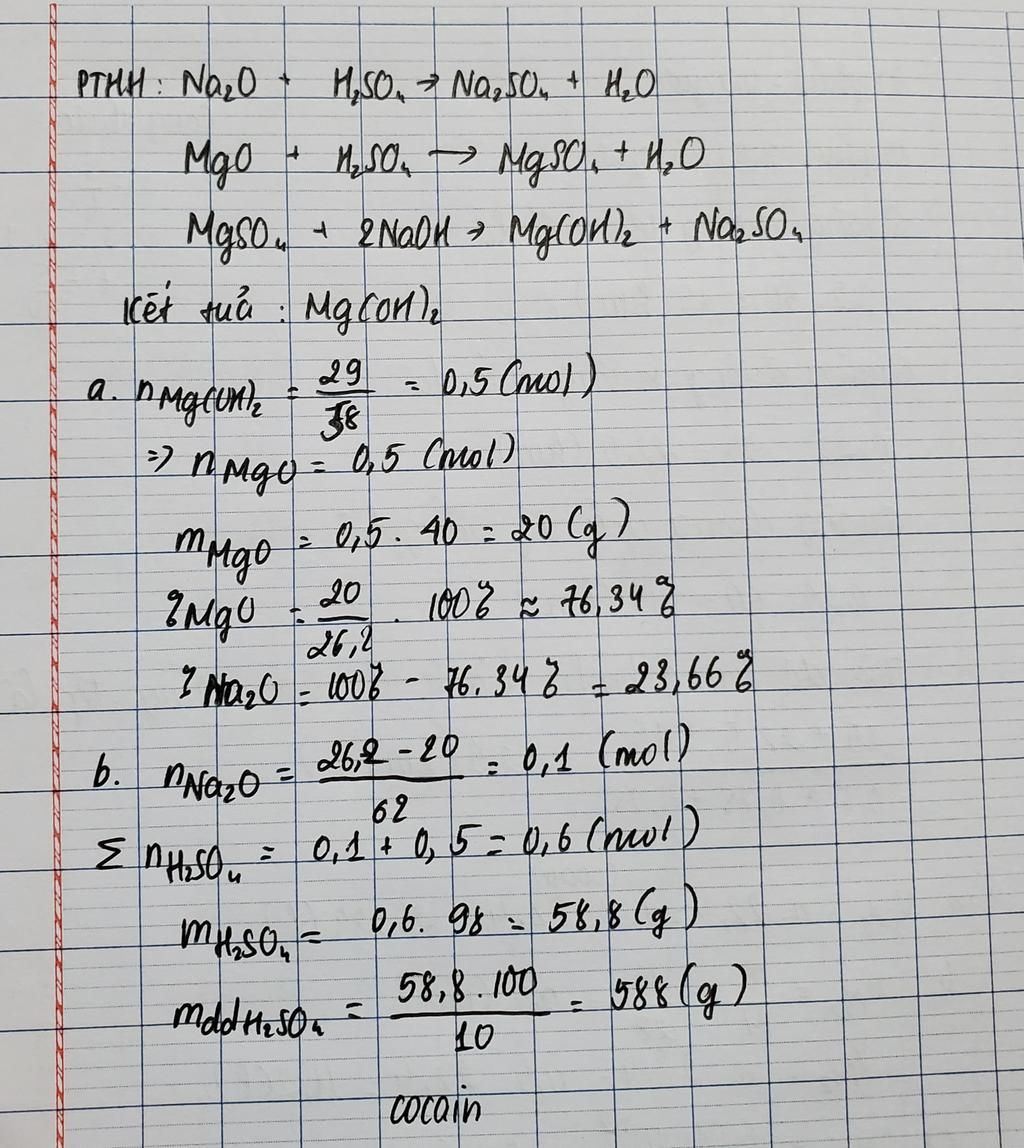 PTHH: Na₂O + H₂SO₄ → Na₂SO₄ + H₂O
MgO + H₂SO₄ → MgSO₄ + H₂O
MgSO₄ + 2NaOH → Mg(OH)₂ + Na₂SO₄
Kết tuả : Mg(OH)₂
a. nMg(OH)₂ = 29/58 = 0,5 (mol)
=> nMgO = 0,5 (mol)
mMgO = 0,5 . 40 = 20 (g)
%MgO = 20/26,2 . 100% ≈ 76,34%
%Na₂O = 100% - 76.34% = 23,66%
b. nNa₂O = (26,2 - 20)/62 = 0,1 (mol)
Σ nH₂SO₄ = 0,1 + 0,5 = 0,6 (mol)
mH₂SO₄ = 0,6 . 98 = 58,8 (g)
mddH₂SO₄ = (58,8 . 100)/10 = 588 (g)
cocain